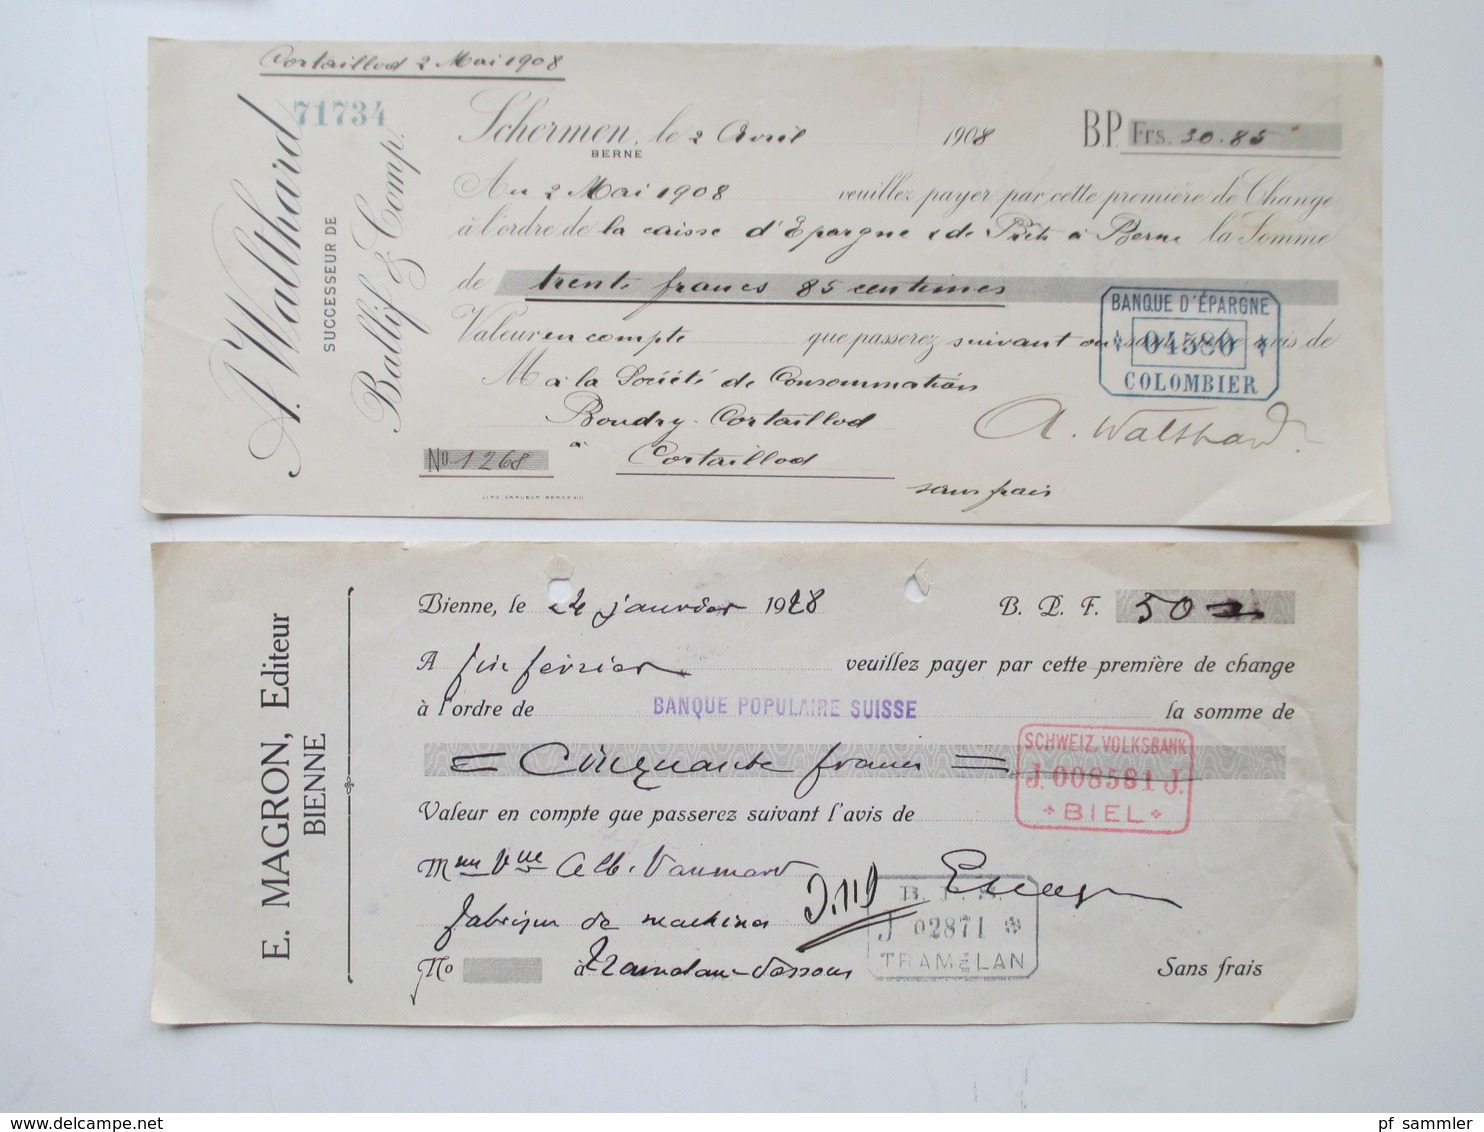 Cortaillod 2 Mai 1908
71734
A. Walthard
SUCCESSEUR DE
Ballif & Comp.
Schermen, le 2 Avril 1908 B.P. Frs. 30.85
BERNE
Au 2 Mai 1908 veuillez payer par cette première de Change
à l'ordre de la caisse d'Epargne & de Prêts à Berne la Somme
de trente francs 85 centimes
BANQUE D'ÉPARGNE
04580
COLOMBIER
Valeur en compte que passerez suivant ou sans autre avis de
M à la Société de Consommation
Boudry-Cortaillod
à Cortaillod
A. Walthard
No 1268
sans frais
E. MAGRON, Editeur
BIENNE
Bienne, le 24 janvier 1928 B. P. F. 50
A fin février veuillez payer par cette première de change
à l'ordre de BANQUE POPULAIRE SUISSE la somme de
= Cinquante francs =
SCHWEIZ. VOLKSBANK
J. 008581 J.
BIEL
Valeur en compte que passerez suivant l'avis de
Mme Vve Alb. Vaumard
fabrique de machines
B. P. S.
J 02871
TRAMELAN
No à Tramelan-dessous Sans frais
pf_sammler